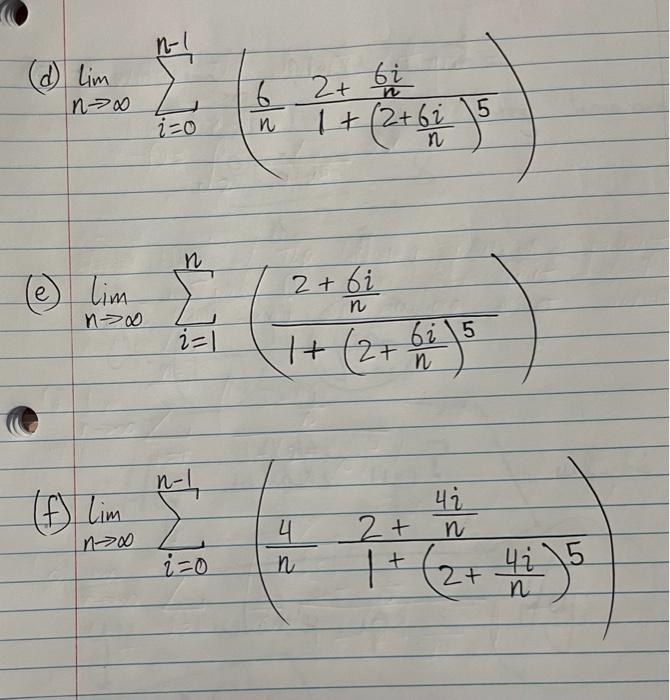 (d) lim n→∞ ∑ i=0 n-1 ( 6/n (2 + 6i/n)/(1 + (2 + 6i/n)^5) )
(e) lim n→∞ ∑ i=1 n ( (2 + 6i/n)/(1 + (2 + 6i/n)^5) )
(f) lim n→∞ ∑ i=0 n-1 ( 4/n (2 + 4i/n)/(1 + (2 + 4i/n)^5) )